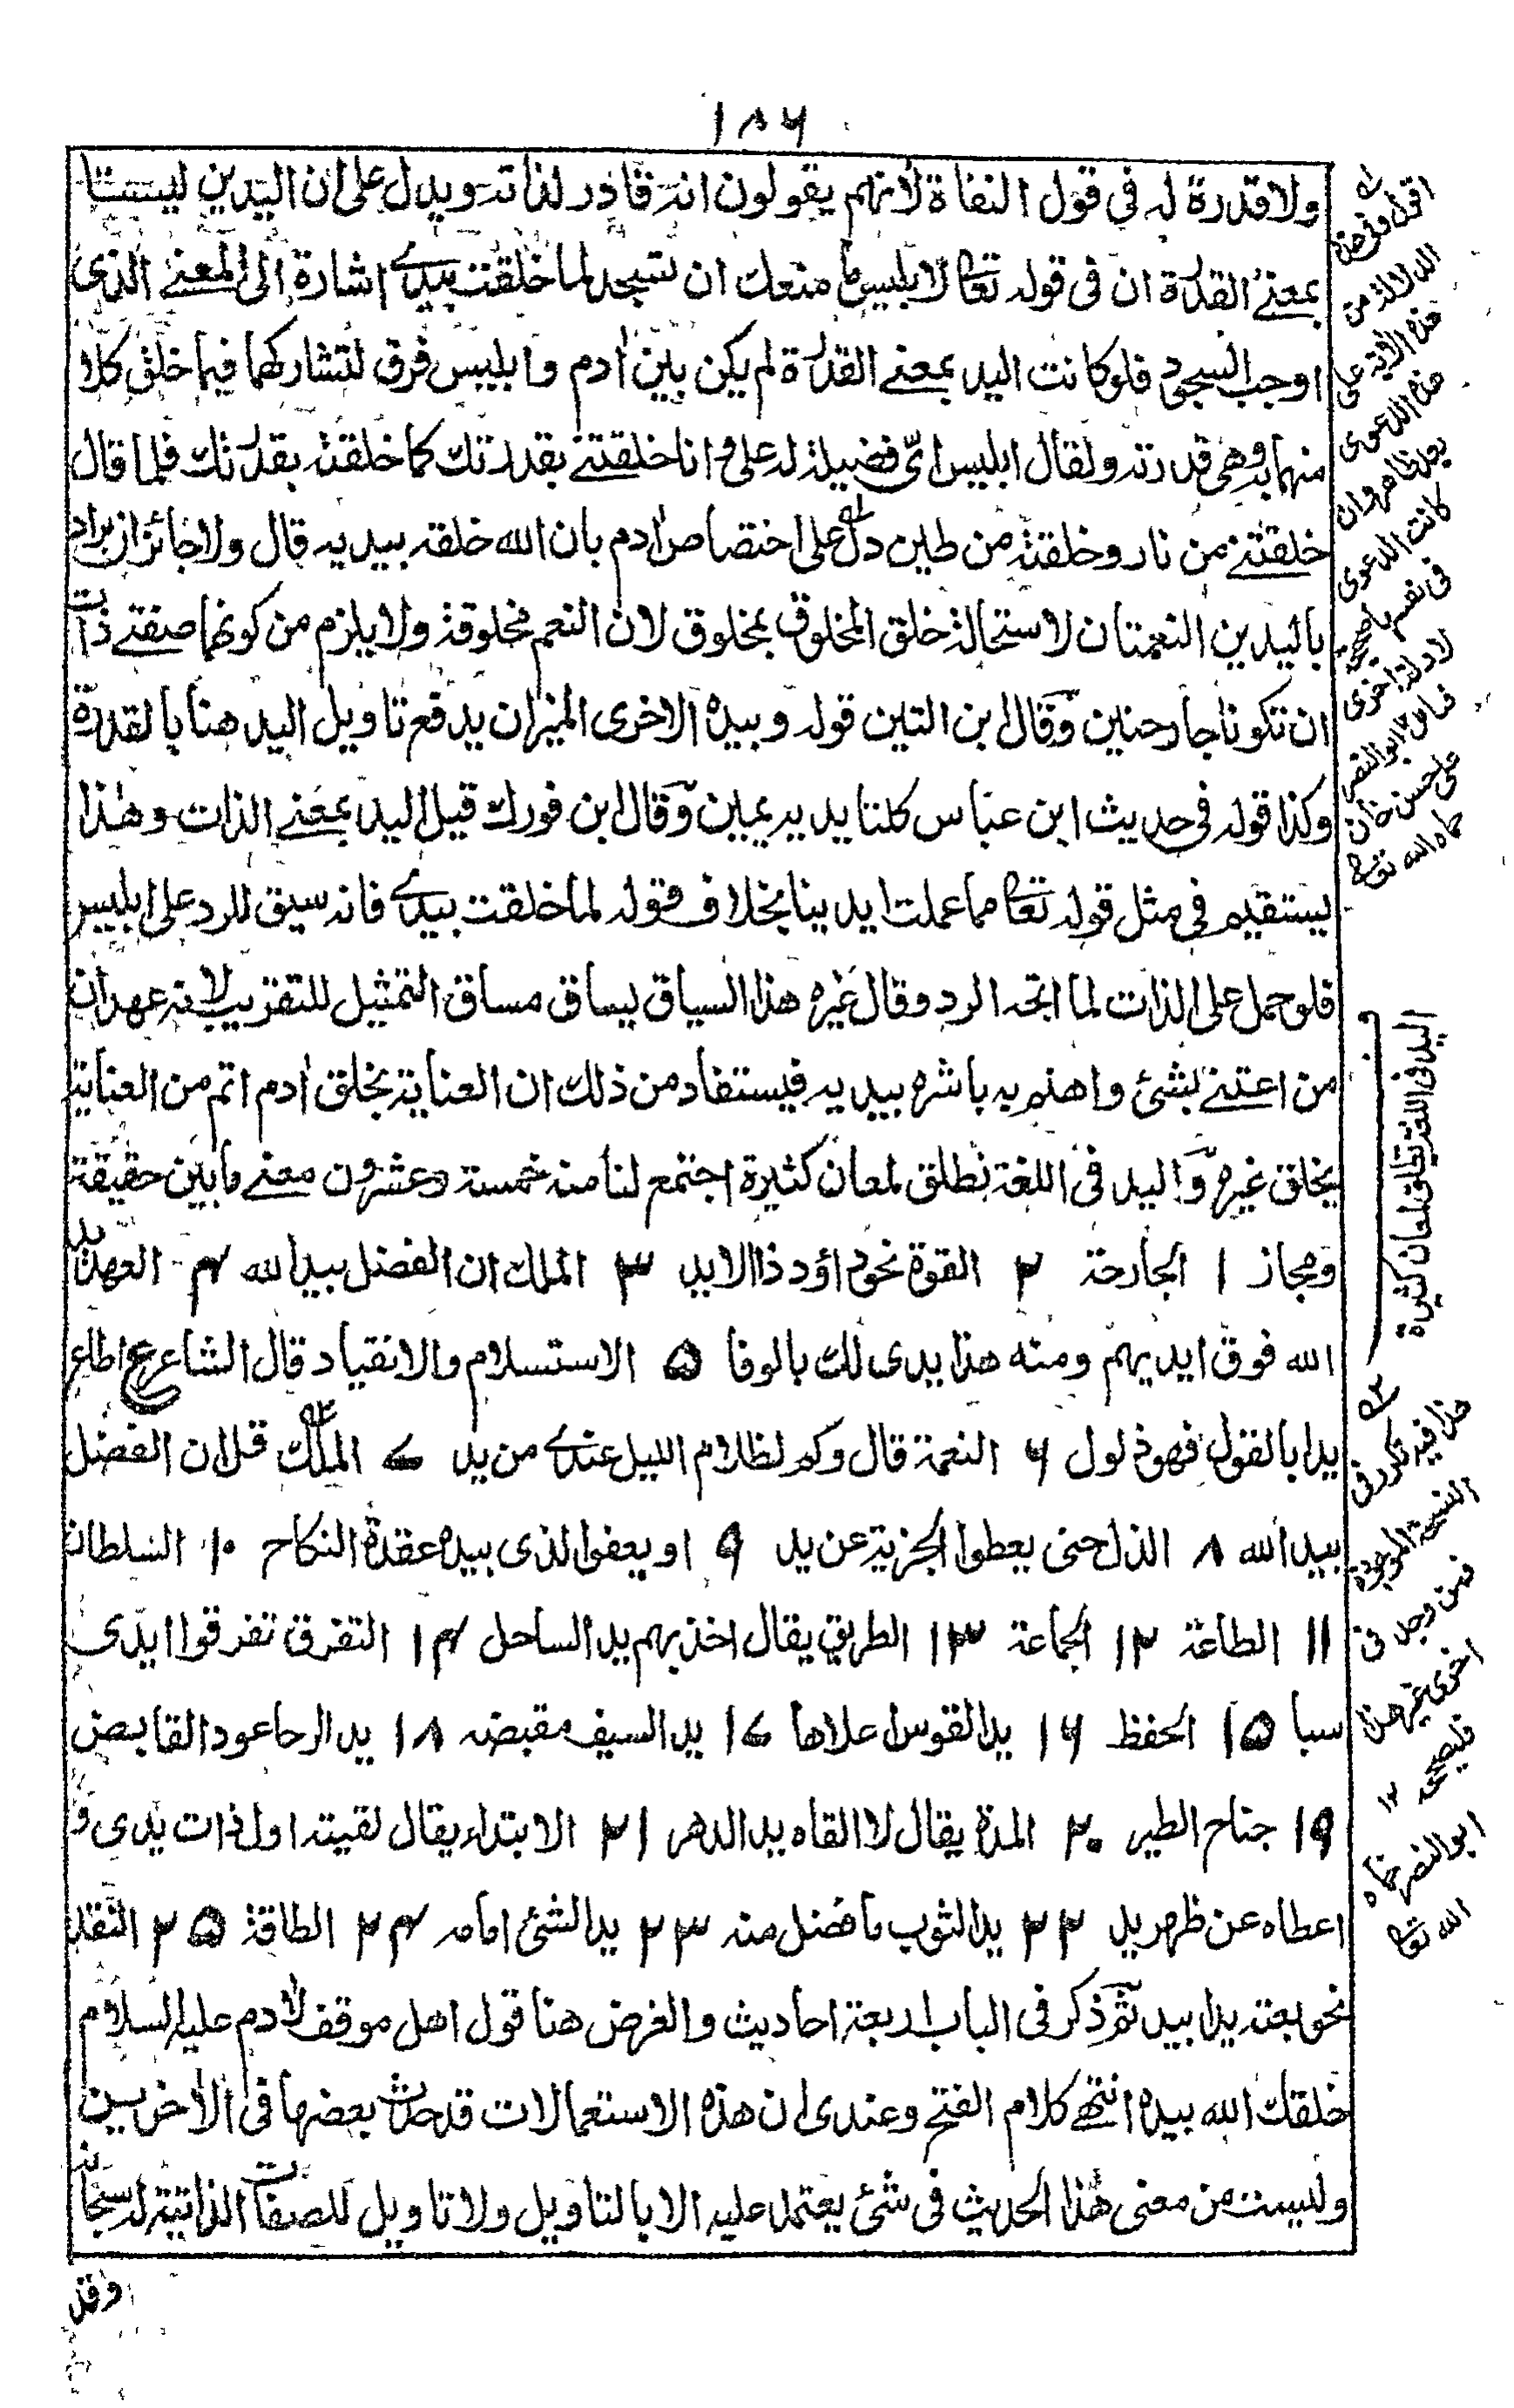 ١٨٦
ولا قدرة له في قول النفاة لأنهم يقولون انه قادر لذاته ويدل على ان اليدين ليستا
بمعنے القدرة ان في قوله تعالى لابليس ما منعك ان تسجد لما خلقت بيدے اشارة الى المعنے الذى
اوجب السجود فلو كانت اليد بمعنے القدرة لم يكن بين أدم وابليس فرق لتشاركهما فيما خلق كلا
منهما به وهى قدرته ولقال ابليس اىّ فضيلة له علىّ وانا خلقتنے بقدرتك كما خلقته بقدرتك فلما قال
خلقتنے من نار وخلقته من طين دل على اختصاص أدم بان الله خلقه بيديه قال ولا جائز ان يراد
باليدين النعمتان لاستحالة خلق المخلوق بمخلوق لان النعم مخلوقة ولا يلزم من كونهما صفتے ذات
ان تكونا جارحتين وقال ابن التين قوله وبيده الاخرى الميزان يدفع تاويل اليد هنا بالقدرة
وكذا قوله في حديث ابن عباس كلتا يديه يمين وقال ابن فورك قيل اليد بمعنے الذات وهذا
يستقيم في مثل قوله تعالى مما عملت ايدينا بخلاف قوله لما خلقت بيدے فانه سيق للرد على ابليس
فلو حمل على الذات لما اتجه الرد وقال غيره هذا السياق يساق مساق التمثيل للتقريب لانه عهد ان
من اعتنے بشئ واهتم به باشره بيديه فيستفاد من ذلك ان العناية بخلق أدم اتم من العناية
بخلق غيره واليد في اللغة تطلق لمعان كثيرة اجتمع لنا منه خمسة وعشرون معنے ما بين حقيقة
ومجاز ١ الجارحة ٢ القوة نحو داؤد ذا الايد ٣ الملك ان الفضل بيد الله ٤ العهد يد
الله فوق ايديهم ومنه هذا يدى لك بالوفا ٥ الاستسلام والانقياد قال الشاعر ع اطاع
يدا بالقول فهو ذلول ٦ النعمة قال وكم لظلام الليل عندے من يد ٧ الملك قل ان الفضل
بيد الله ٨ الذل حتى يعطوا الجزية عن يد ٩ او يعفوا الذى بيده عقدة النكاح ١٠ السلطان
١١ الطاعة ١٢ الجماعة ١٣ الطريق يقال اخذ بهم يد الساحل ١٤ التفرق تفرقوا ايدى
سبا ١٥ الحفظ ١٦ يد القوس اعلاها ١٧ يد السيف مقبضه ١٨ يد الرحا عود القابض
١٩ جناح الطير ٢٠ المدة يقال لا القاه يد الدهر ٢١ الابتداء يقال لقيته اول ذات يدى و
اعطاه عن ظهر يد ٢٢ يد الثوب ما فضل منه ٢٣ يد الشئ امامه ٢٤ الطاقة ٢٥ النقد
نحو بعته يدا بيد ثم ذكر في الباب اربعة احاديث والغرض هنا قول اهل موقف لأدم عليه السلام
خلقك الله بيده انتهے كلام الفتح وعندى ان هذه الاستعمالات قد حدث بعضها في الأخرين
وليست من معنى هذا الحديث في شئ يعتمد عليه الا بالتاويل ولا تاويل للصفات الذاتية له سبحانه
وقد
اقول وفي هذه
الدلالة من
هذه الأية على
هذه الدعوى
بعد ظاهر وان
كانت الدعوى
في نفسها صحيحة
لادلة اخرى
ابو النصر
على حسن خان
حماه الله تعالى
اليد في اللغة تطلق لمعان كثيرة
هذا فيه تكرر في
النسخة الموجودة
فمن وجد في
اخرى غير هذا
فليصححه ١٢
ابو النصر حماه
الله تعالى